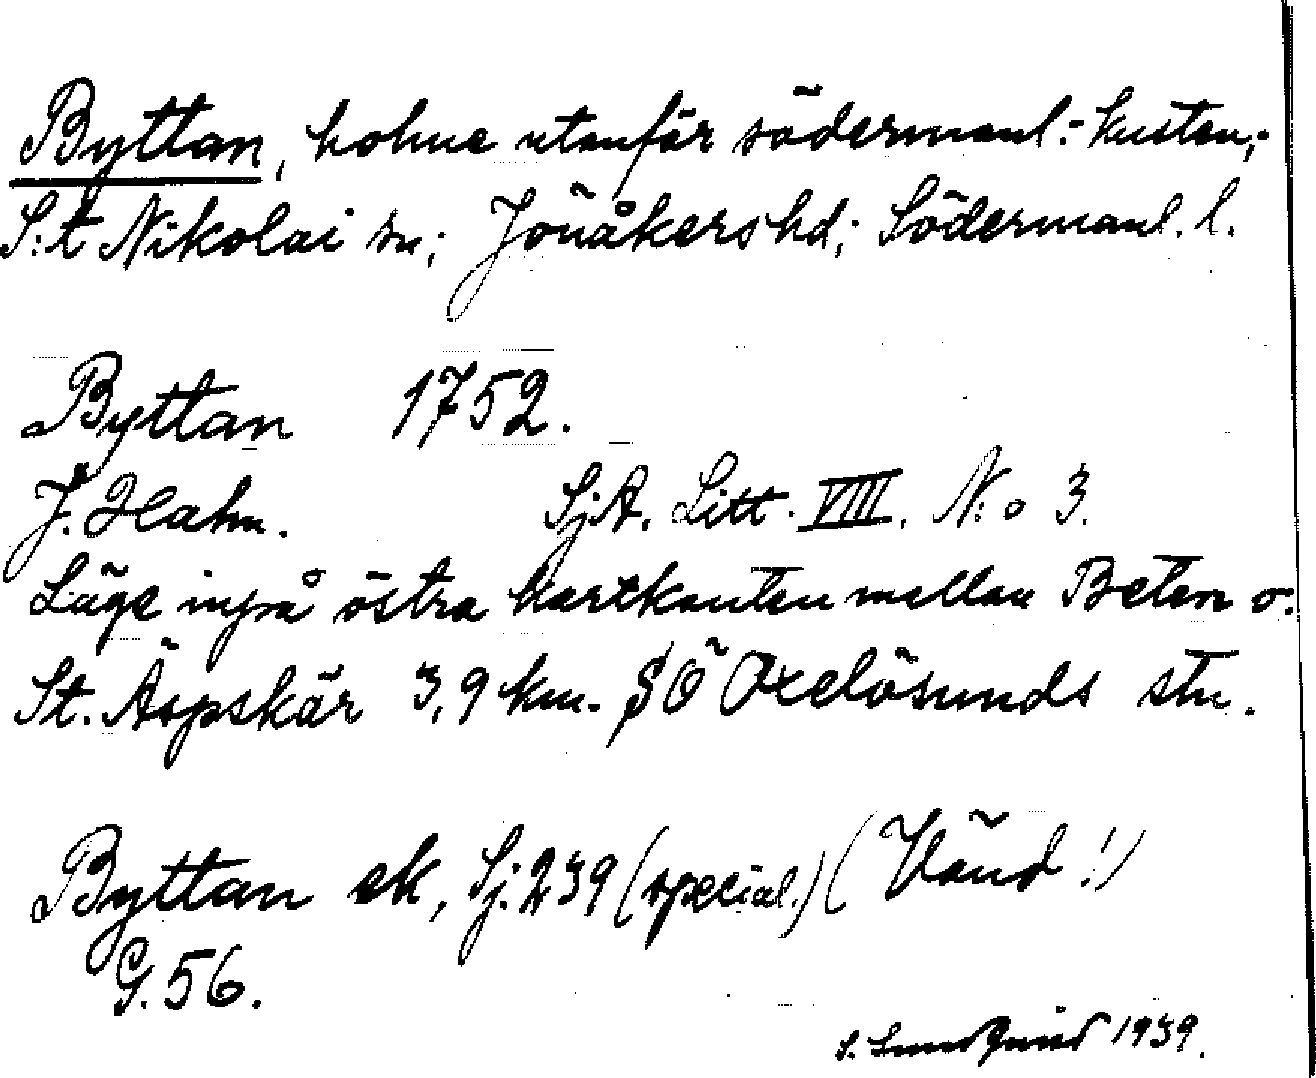 Byttan, holme utanför södermanl.-kusten,-
S:t Nikolai sn; Jönåkers hd; Södermanl. l.
Byttan 1752.
J. Hahn. SjA. Litt. VIII. N:o 3.
Läge invid östra kartkanten mellan Beten o.
St. Äspskär 3,9 km. SÖ Oxelösunds stn.
Byttan sk, Sj. 239 (special.) (Vänd!)
G. 56.
S. Lundqvist 1939.